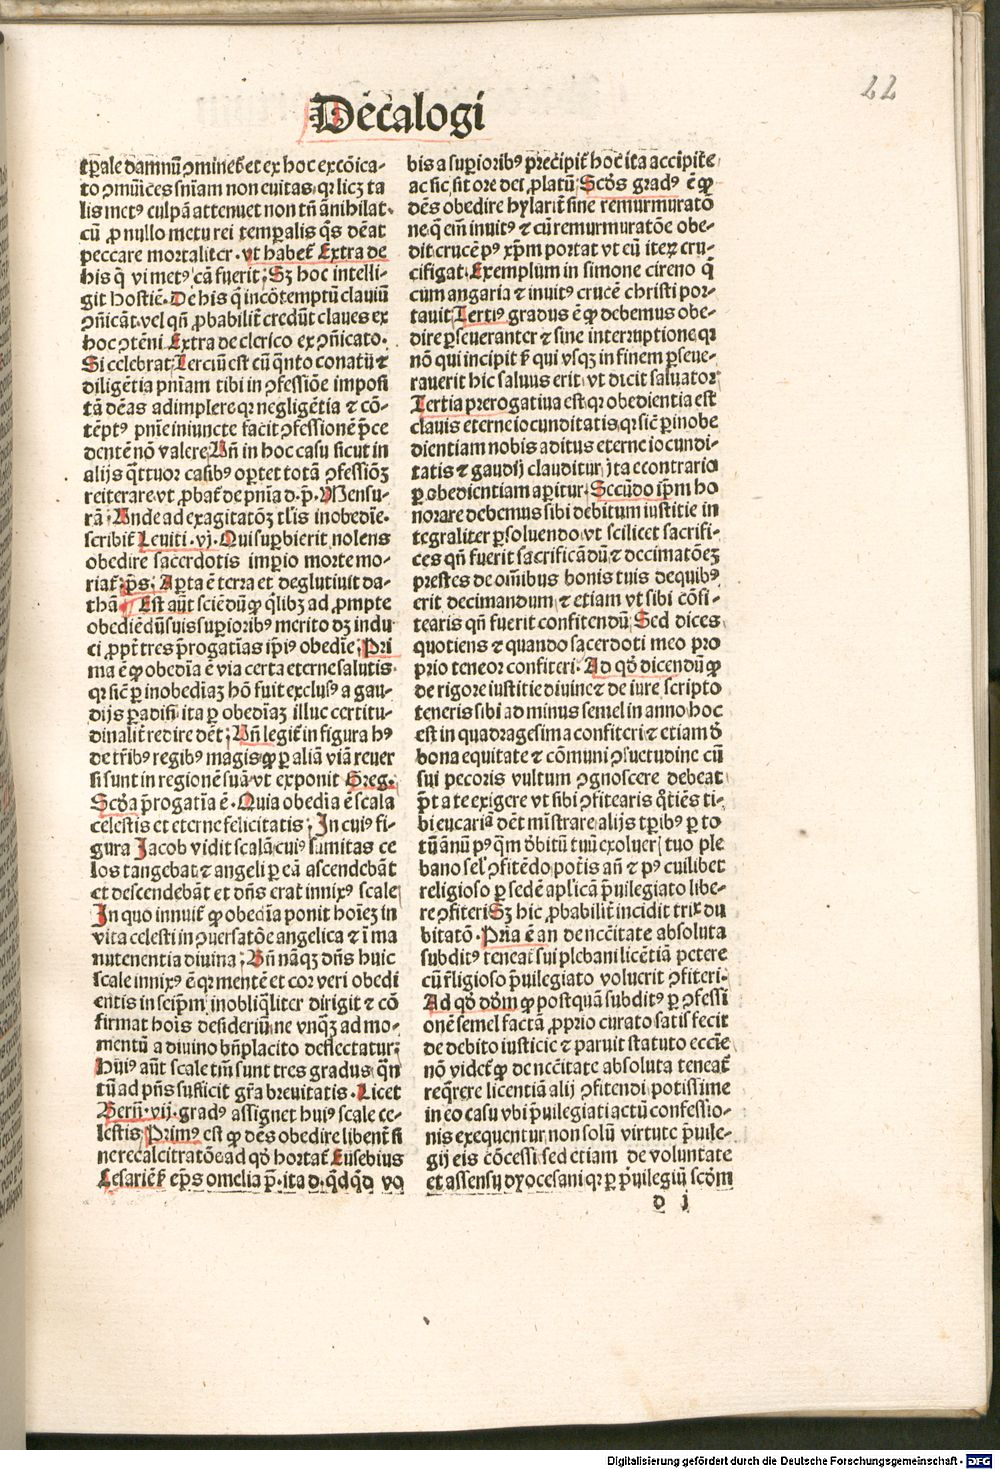 22
Decalogi
tꝑale damnū ꝯmineť et ex hoc excōica-
to ꝯmūices sniam non euitas qꝛ licꝫ ta
lis metꝰ culpā attenuet non tn̄ annihilat
cū ꝓ nullo metu rei temꝑalis q̄s deāt
peccare mortaliter. vt habeť Extra de
his q̄ vi metꝰ cā fuerit. Sꝫ hoc intelli-
git hostieñ. De his q̄ in ꝯtemptū clauiū
ꝯic̄āt. vel qn̄ ꝓbabiliť credūt claues ex
hoc ꝯtēni Extra de clerico ex ꝯicato.
Si celebrat. Terciū est cū q̄nto conatū ⁊
diligētia pniam tibi in ꝯfessiōe imposi
tā deas adimplere qꝛ negligētia ⁊ cō-
tēptꝰ pnīe iniuncte facit ꝯfessionē p̄ce
dentē nō valere. Vn̄ in hoc casu sicut in
alijs q̄ttuor casibꝰ oꝑtet totā ꝯfessiōꝫ
reiterare. vt ꝓbať de pnīa d. p̄. Mensu-
rā. Vnde ad exagitatōꝫ tl̄is inobediē.
scribiť Leuiti. vj. Qui suꝑbierit nolens
obedire sacerdotis imꝑio morte mo-
riať. ps̄. Aꝑta ē terra et deglutiuit da-
thā. Est aūt sciēdū ꝙ q̄libꝫ ad ꝓmpte
obediēdū suis suꝑioribꝰ merito dꝫ indu
ci ꝓpť tres p̄rogatīas ip̄iꝰ obedīe. Pri
ma ē ꝙ obedīa ē via certa eterne salutis.
qꝛ sic̄ ꝑ inobedīaꝫ hō fuit exclusꝰ a gau-
dijs ꝑadisi. ita ꝑ obedīaꝫ illuc certitu-
dinaliť redire deꝫ. Vn̄ legiť in figura hꝰ
de trībꝰ regibꝰ magis ꝙ ꝑ aliā viā reuer
si sunt in regionē suā. vt exponit Greg.
Scd̄a p̄rogatīa ē. Quia obedīa ē scala
celestis et eterne felicitatis. In cuiꝰ fi-
gura Jacob vidit scalā. cuiꝰ sūmitas ce
los tangebat ⁊ angeli ꝑ eā ascendebāt
et descendebāt et dn̄s erat innixꝰ scale
In quo innuiť ꝙ obedīa ponit hoīeꝫ in
vita celesti in ꝯuersatōe angelica ⁊ ī ma
nutenentia diuina. Vn̄ nāqꝫ dn̄s huic
scale innixꝰ ē qꝛ mentē et cor veri obedi
entis in seip̄m inobliq̄liter dirigit ⁊ cō
firmat hoīs desideriū. ne vnqꝫ ad mo-
mentū a diuino bn̄placito deflectatur.
Huiꝰ aūt scale tm̄ sunt tres gradus q̄n
tū ad pn̄s sufficit gr̄a breuitatis. Licet
Bern̄. vij. gradꝰ assignet huiꝰ scale ce-
lestis Primꝰ est ꝙ dēs obedire libenť si
ne recalcitratōe. ad qd̄ hortať Eusebius
Cesarieñ ep̄s omelia p̄. ita d. q̄dq̄d vo
bis a suꝑioribꝰ precipiť hoc ita accipite
ac sic sit ore dei ꝓlatū. Scd̄s gradꝰ ē ꝙ
dēs obedire hylariť sine remurmuratō
ne. q̄ em̄ inuitꝰ ⁊ cū remurmuratōe obe-
dit. crucē pꝰ xp̄m portat vt eū iteꝝ cru-
cifigat. Exemplum in simone cireno q̄
cum angaria ⁊ inuitꝰ crucē christi por-
tauit. Tertiꝰ gradus ē ꝙ debemus obe-
dire ꝑseueranter ⁊ sine interruptione. qꝛ
nō qui incipit sꝫ qui vsqꝫ in finem ꝑseue-
rauerit hic saluus erit. vt dicit saluator
Tertia prerogatiua est. qꝛ obedientia est
clauis eterne iocunditatis. qꝛ sic̄ ꝑ inobe
dientiam nobis aditus eterne iocundi-
tatis ⁊ gaudij clauditur. ita econtrario
ꝑ obedientiam aꝑitur. Secūdo ip̄m ho
norare debemus sibi debitum iustitie in
tegraliter ꝑsoluendo. vt scilicet sacrifi-
ces qn̄ fuerit sacrificādū ⁊ decimatōeꝫ
prestes de om̄ibus bonis tuis de quibꝰ
erit decimandum. ⁊ etiam vt sibi cōfi-
tearis qn̄ fuerit confitendū. Sed dices
quotiens ⁊ quando sacerdoti meo pro
prio teneor confiteri. Ad qd̄ dicendū ꝙ
de rigore iustitie diuine ⁊ de iure scripto
teneris sibi ad minus semel in anno hoc
est in quadragesima confiteri ⁊ etiam d̄
bona equitate ⁊ cōmuni ꝯsuetudine cū
sui pecoris vultum ꝯgnoscere debeat
p̄t a te exigere vt sibi ꝯfitearis q̄tiēs ti-
bi eucariā dēt mīstrare alijs tꝑibꝰ ꝑ to
tū ānū pꝰ q̄m d̄bitū tuū exoluer tuo ple
bano sel̄ ꝯfitēdo poťis an̄ ⁊ pꝰ cuilibet
religioso ꝑ sedē apl̄icā p̄uilegiato libe-
re ꝯfiteri Sꝫ hic ꝓbabiliť incidit trix du
bitatō. Pn̄a ē an de nccītate absoluta
subditꝰ teneat sui plebani licētiā petere
cū rl̄igioso p̄uilegiato voluerit ꝯfiteri.
Ad qd̄ dōm ꝙ postquā subditꝰ ꝑ ꝯfessi
onē semel factā ꝓprio curato satis fecit
de debito iusticie ⁊ paruit statuto eccīe
nō videť ꝙ de nccītate absoluta teneať
req̄rere licentiā alij ꝯfitendi. potissime
in eo casu vbi p̄uilegiati actū confessio-
nis exequentur. non solū virtute p̄uile-
gij eis cōcessi. sed etiam de voluntate
et assensu dyocesani qꝛ ꝑ p̄uilegiū scd̄m
d j
Digitalisierung gefördert durch die Deutsche Forschungsgemeinschaft - DFG